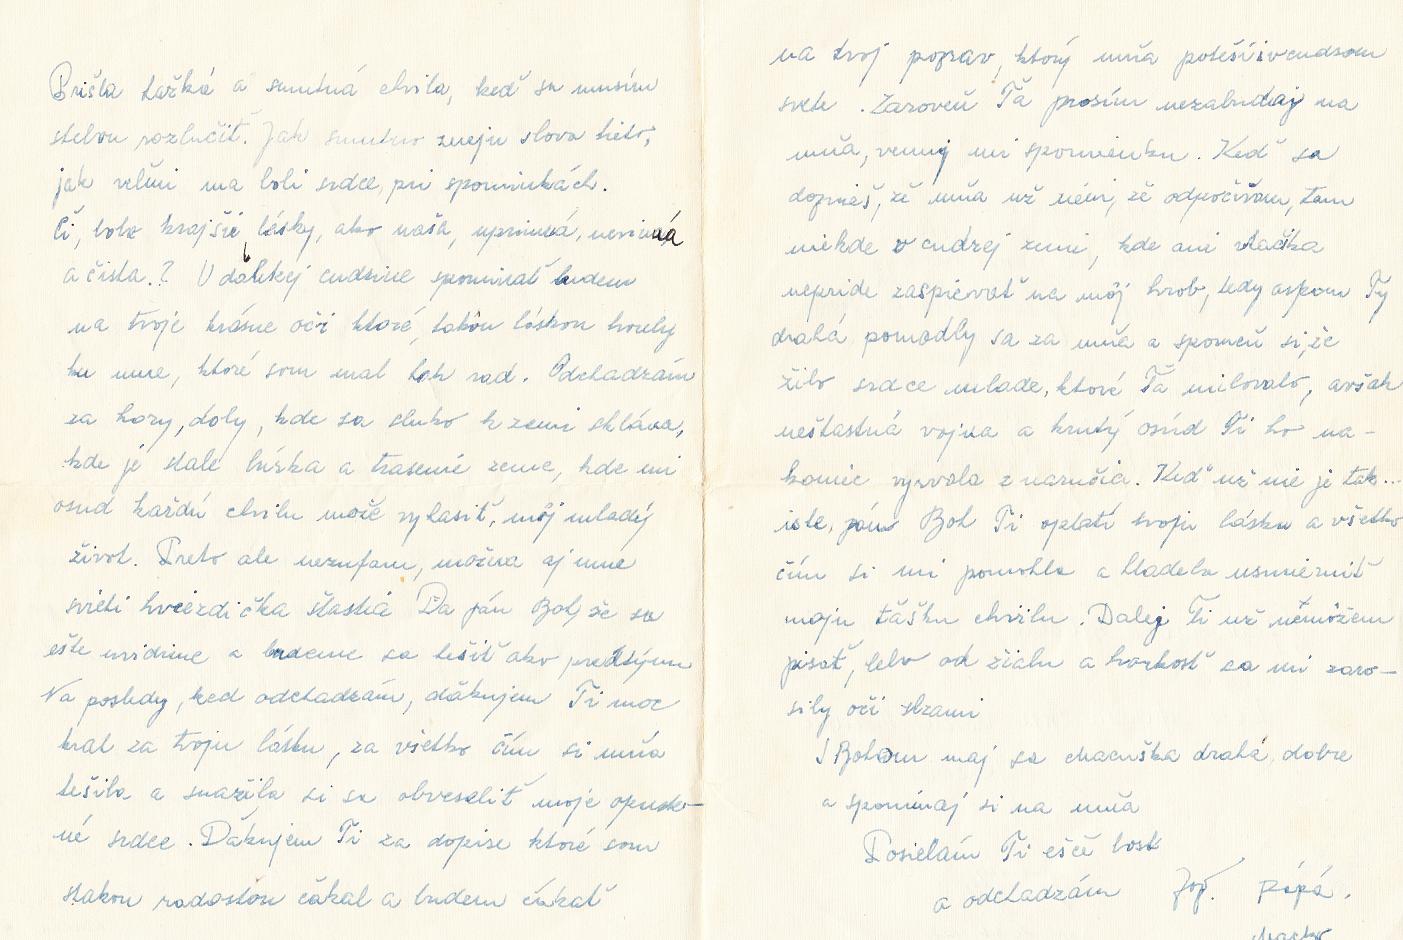 Prišla ťažká a smutná chvila, keď sa musím
stebou rozlučiť. Jak smutno zneju slova tieto,
jak velmi ma boli srdce pri spominkách.
Či, bolo krajšié lásky, ako naša, uprimná, nevinná
a čista..? V dalekej cudzine spominať budem
na tvoje krásne oči ktoré, takou láskou horely
ku mne, ktoré som mal tak rad. Odchadzám
za hory, doly, kde sa slnko k zemi skláňa,
kde je stale búrka a trasenie zeme, kde mi
osud každú chvilu može vyhasiť, môj mladý
život. Preto ale nezufam, možna aj mne
svieti hviezdička šťastia Da pán Boh, že sa
ešte uvidime a budeme sa tešiť ako predtým
Na posledy, ked odchadzám, ďakujem Ti moc
krat za tvoju lásku, za všetko čím si mňa
tešila a snažila si sa obveselit moje opusťe-
né srdce. Ďakujem Ti za dopise ktoré som
stakou radosťou čakal a budem čakať
na tvoj pozrav, ktorý mňa poteší i v cudzom
svete. Zároveň Ťa prosím nezabudaj na
mňa, venuj mi spomienku. Keď sa
dozvieš, že mňa už néni, že odpočívam, tam
niekde v cudzej zemi, kde ani vtačka
nepride zaspievať na môj hrob, tedy aspom Ty
drahá pomodly sa za mňa a spomeň si, že
žilo srdce mlade, ktoré Ťa milovalo, avšak
neštastná vojna a krutý osúd Ti ho na-
koniec vyrvala z naručia. Keď už nie je tak...
iste, pán Boh Ti oplatí svoju lásku a všetko
čím si mi pomohla a hladela usmierniť
moju ťášku chvilu. Dalej Ti už nemôžem
pisať, lebo od žialu a horkosť sa mi zaro-
sily oči slzami
S Bohom maj sa drahá dobre
a spominaj si na mňa
Posielám Ti ešče bosk
a odchadzám Pápá.